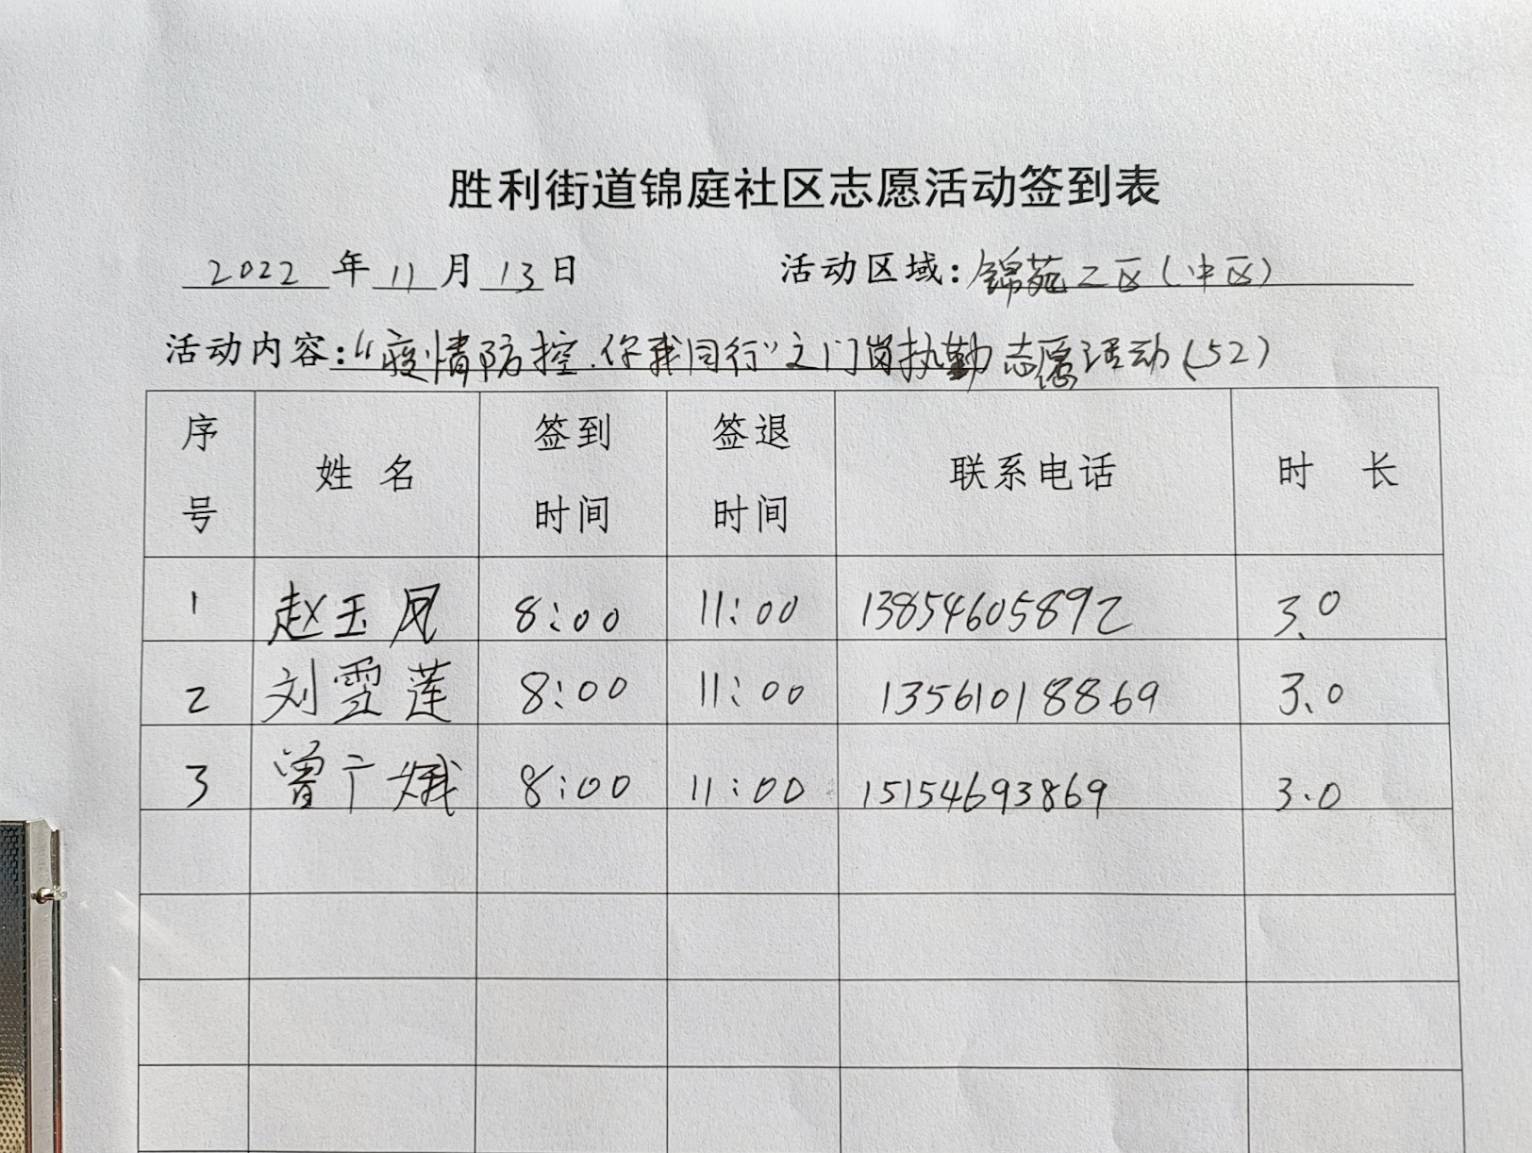 胜利街道锦庭社区志愿活动签到表
2022年11月13日 活动区域:锦苑二区(中区)
活动内容:“疫情防控.你我同行”之门岗执勤志愿活动(52)
序号 姓名 签到时间 签退时间 联系电话 时长
1 赵玉凤 8:00 11:00 13854605892 3.0
2 刘雪莲 8:00 11:00 13561018869 3.0
3 曾广娥 8:00 11:00 15154693869 3.0